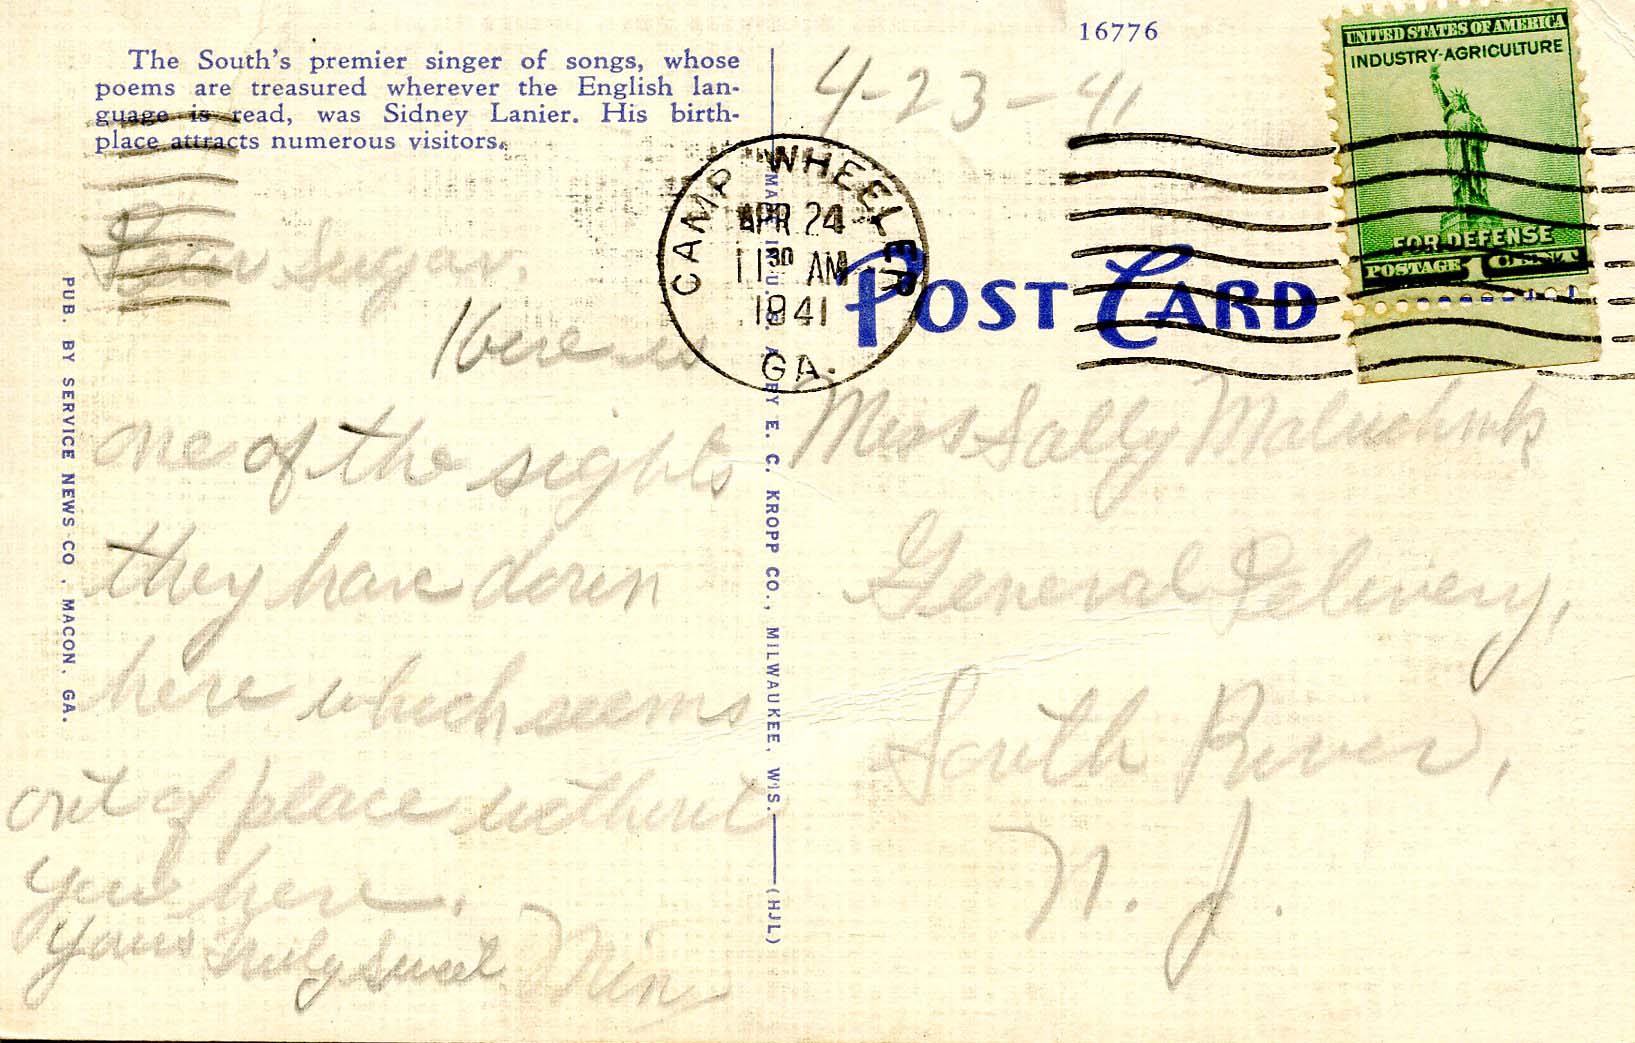 16776
The South's premier singer of songs, whose
poems are treasured wherever the English lan-
guage is read, was Sidney Lanier. His birth-
place attracts numerous visitors.
4-23-41
UNITED STATES OF AMERICA
INDUSTRY-AGRICULTURE
FOR DEFENSE
POSTAGE 1 CENT
CAMP WHEELER
APR 24
11 30 AM
1941
GA.
POST CARD
Dear Sugar,
Here is
one of the sights
they have down
here which seems
out of place without
you here.
Yours truly sweet
Miss Sally
General Delivery,
South River,
N. J.
PUB. BY SERVICE NEWS CO., MACON, GA.
MADE IN U. S. A. BY E. C. KROPP CO., MILWAUKEE, WIS.
(HJL)